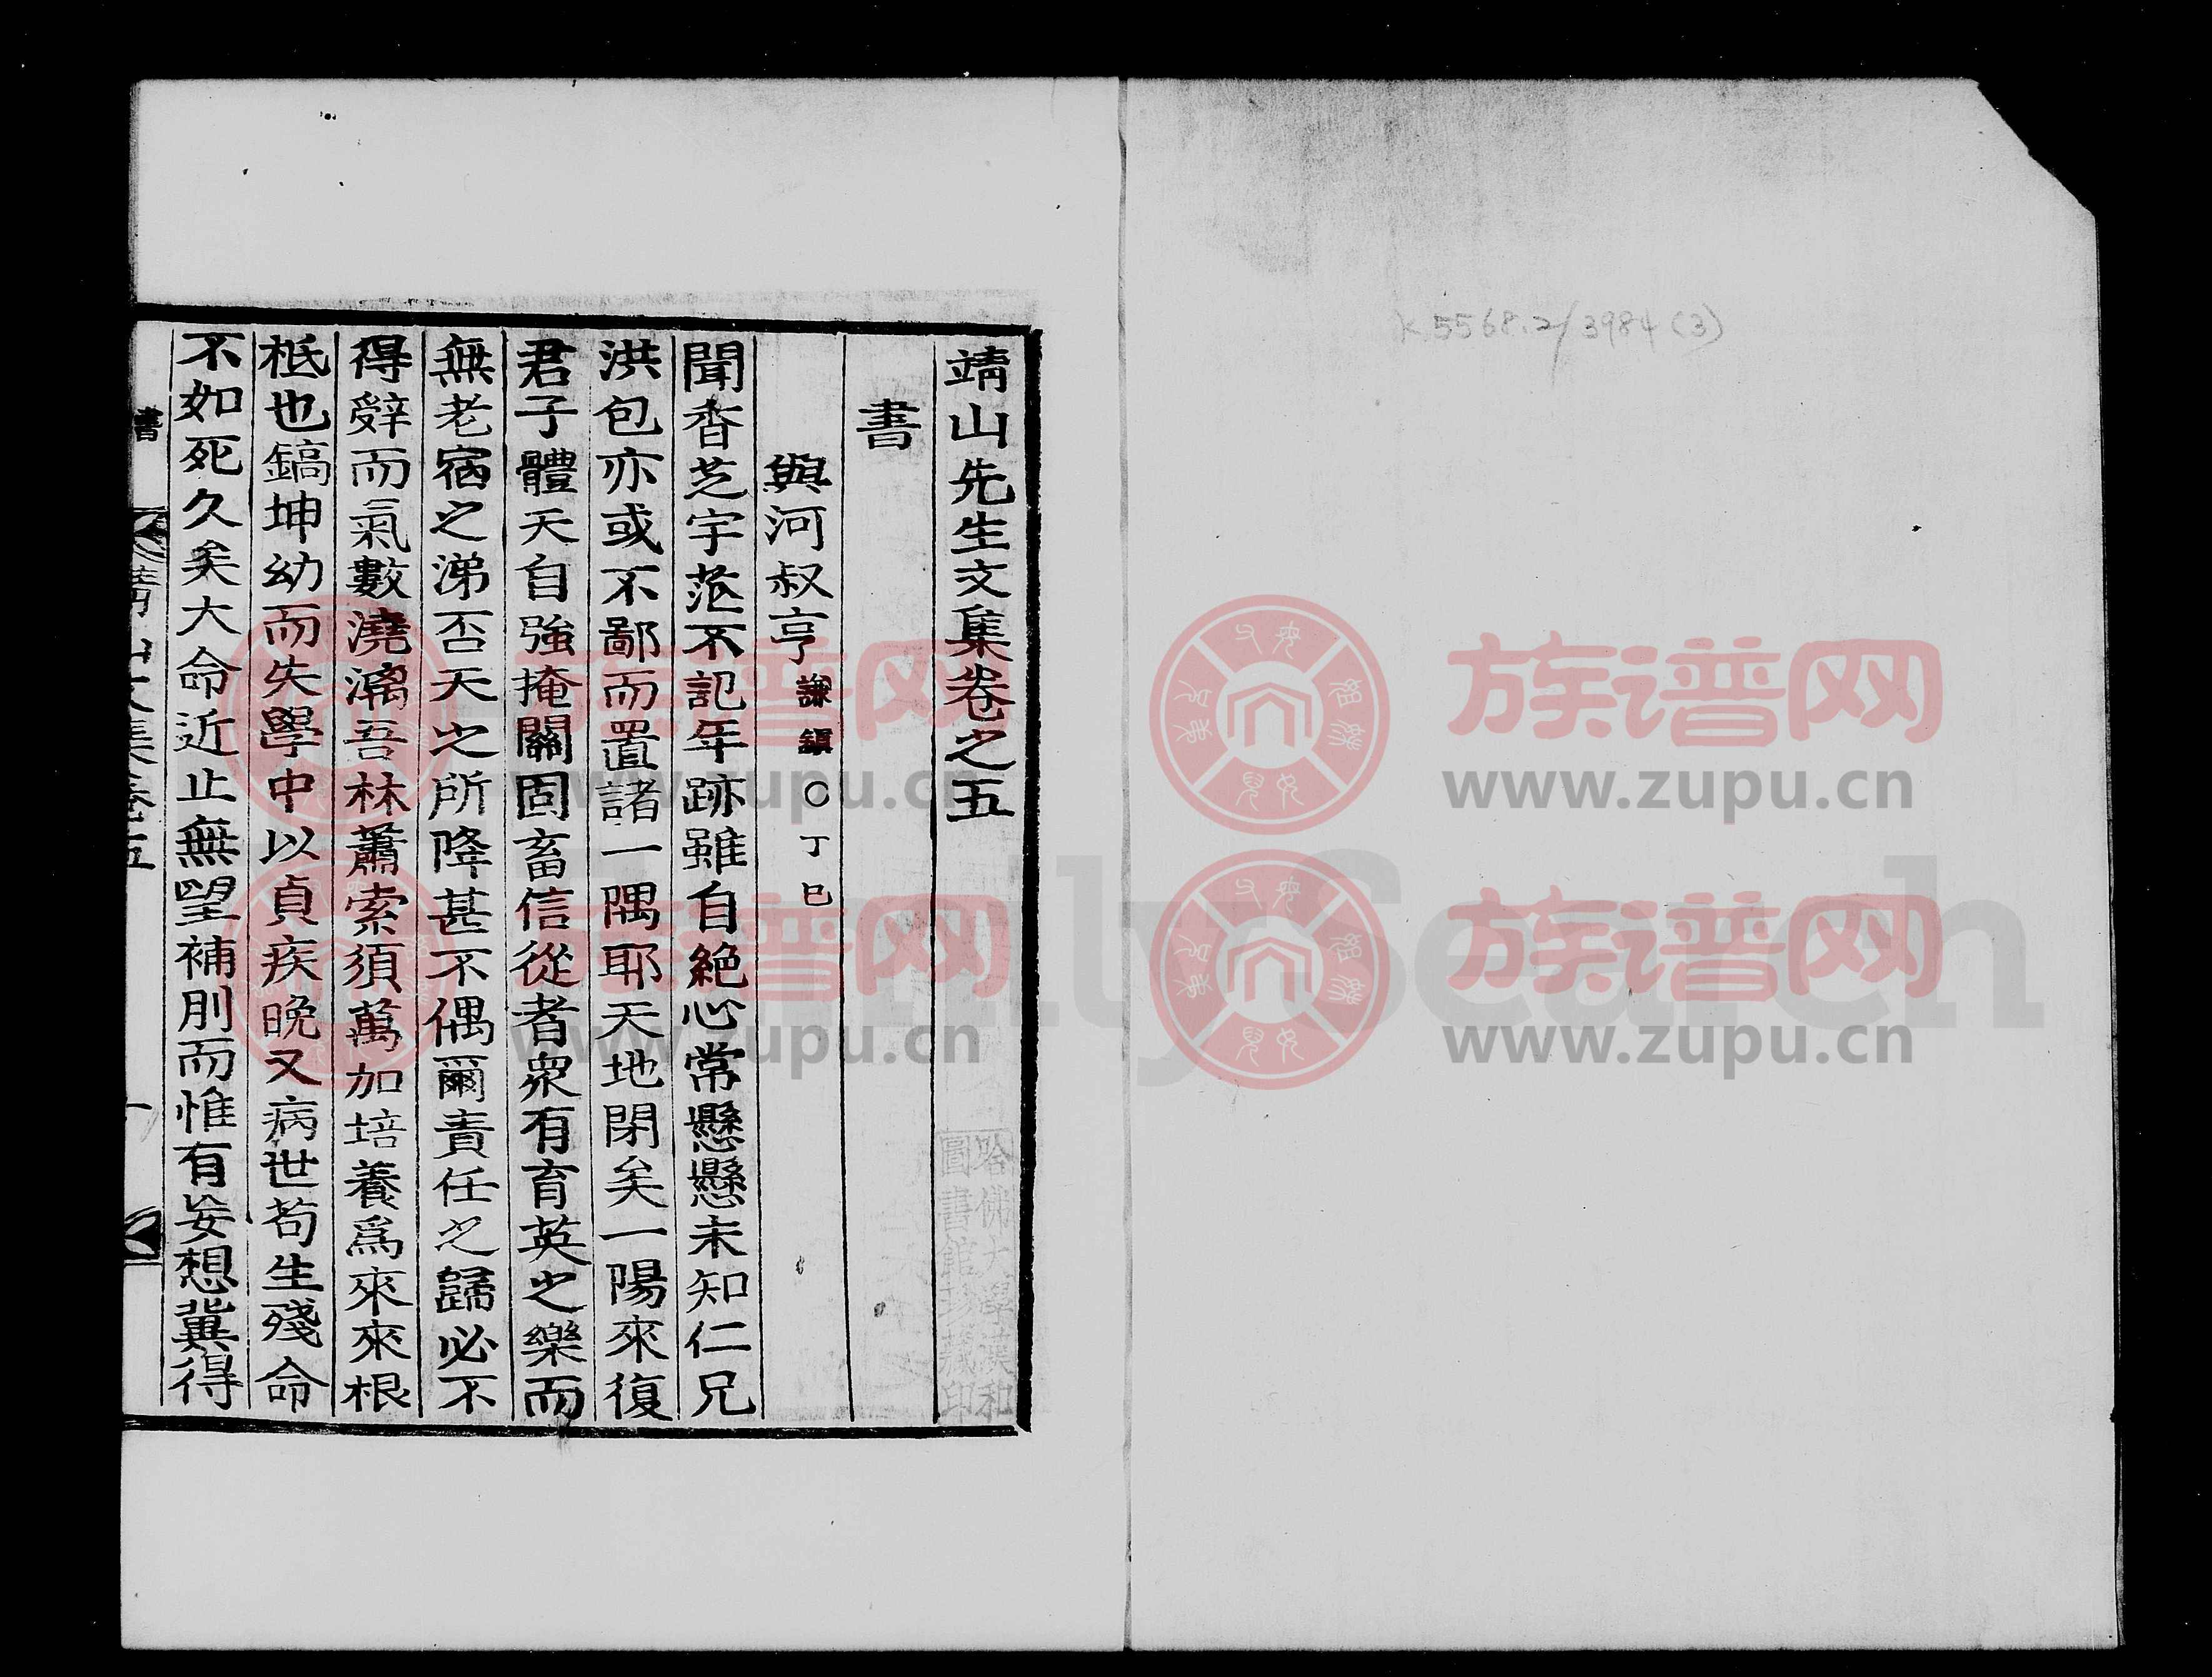 K5568.2/3984(3)
靖山先生文集卷之五
書
與河叔亨謙鎭○丁巳
聞香芝宇茫不記年跡雖自絶心常懸懸未知仁兄
洪包亦或不鄙而置諸一隅耶天地閉矣一陽來復
君子體天自強掩關固畜信從者衆有育英之樂而
無老宿之涕否天之所降甚不偶爾責任之歸必不
得辭而氣數澆漓吾林蕭索須萬加培養爲來來根
柢也鎬坤幼而失學中以貞疾晩又病世苟生殘命
不如死久矣大命近止無望補刖而惟有妄想冀得
書
靖山文集卷五
一
哈佛大學漢和
圖書館珍藏印
族谱网
www.zupu.cn
族谱网
www.zupu.cn
族谱网
www.zupu.cn
族谱网
www.zupu.cn
FamilySearch